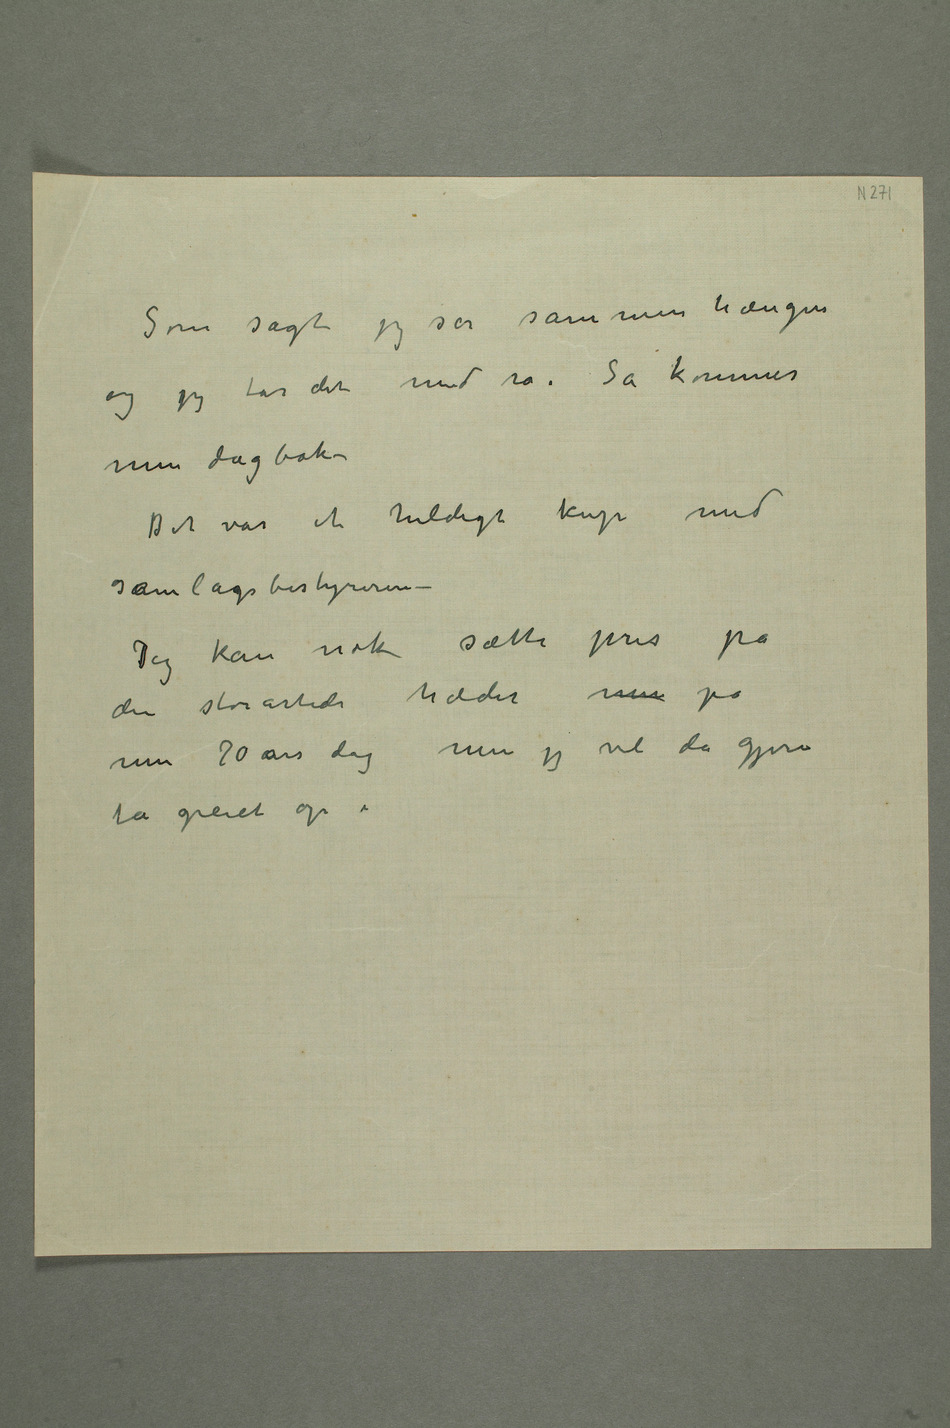 N 271
Som sagt jeg ser sammenhængen
og jeg tar det med ro. Så kommer
min dagbok –
Det var et heldigt kup med
samlagsbestyreren –
Jeg kan nok sætte pris på
den storartede hæder min på
min 70 års dag men jeg vil da gjerne
ha greiet op i